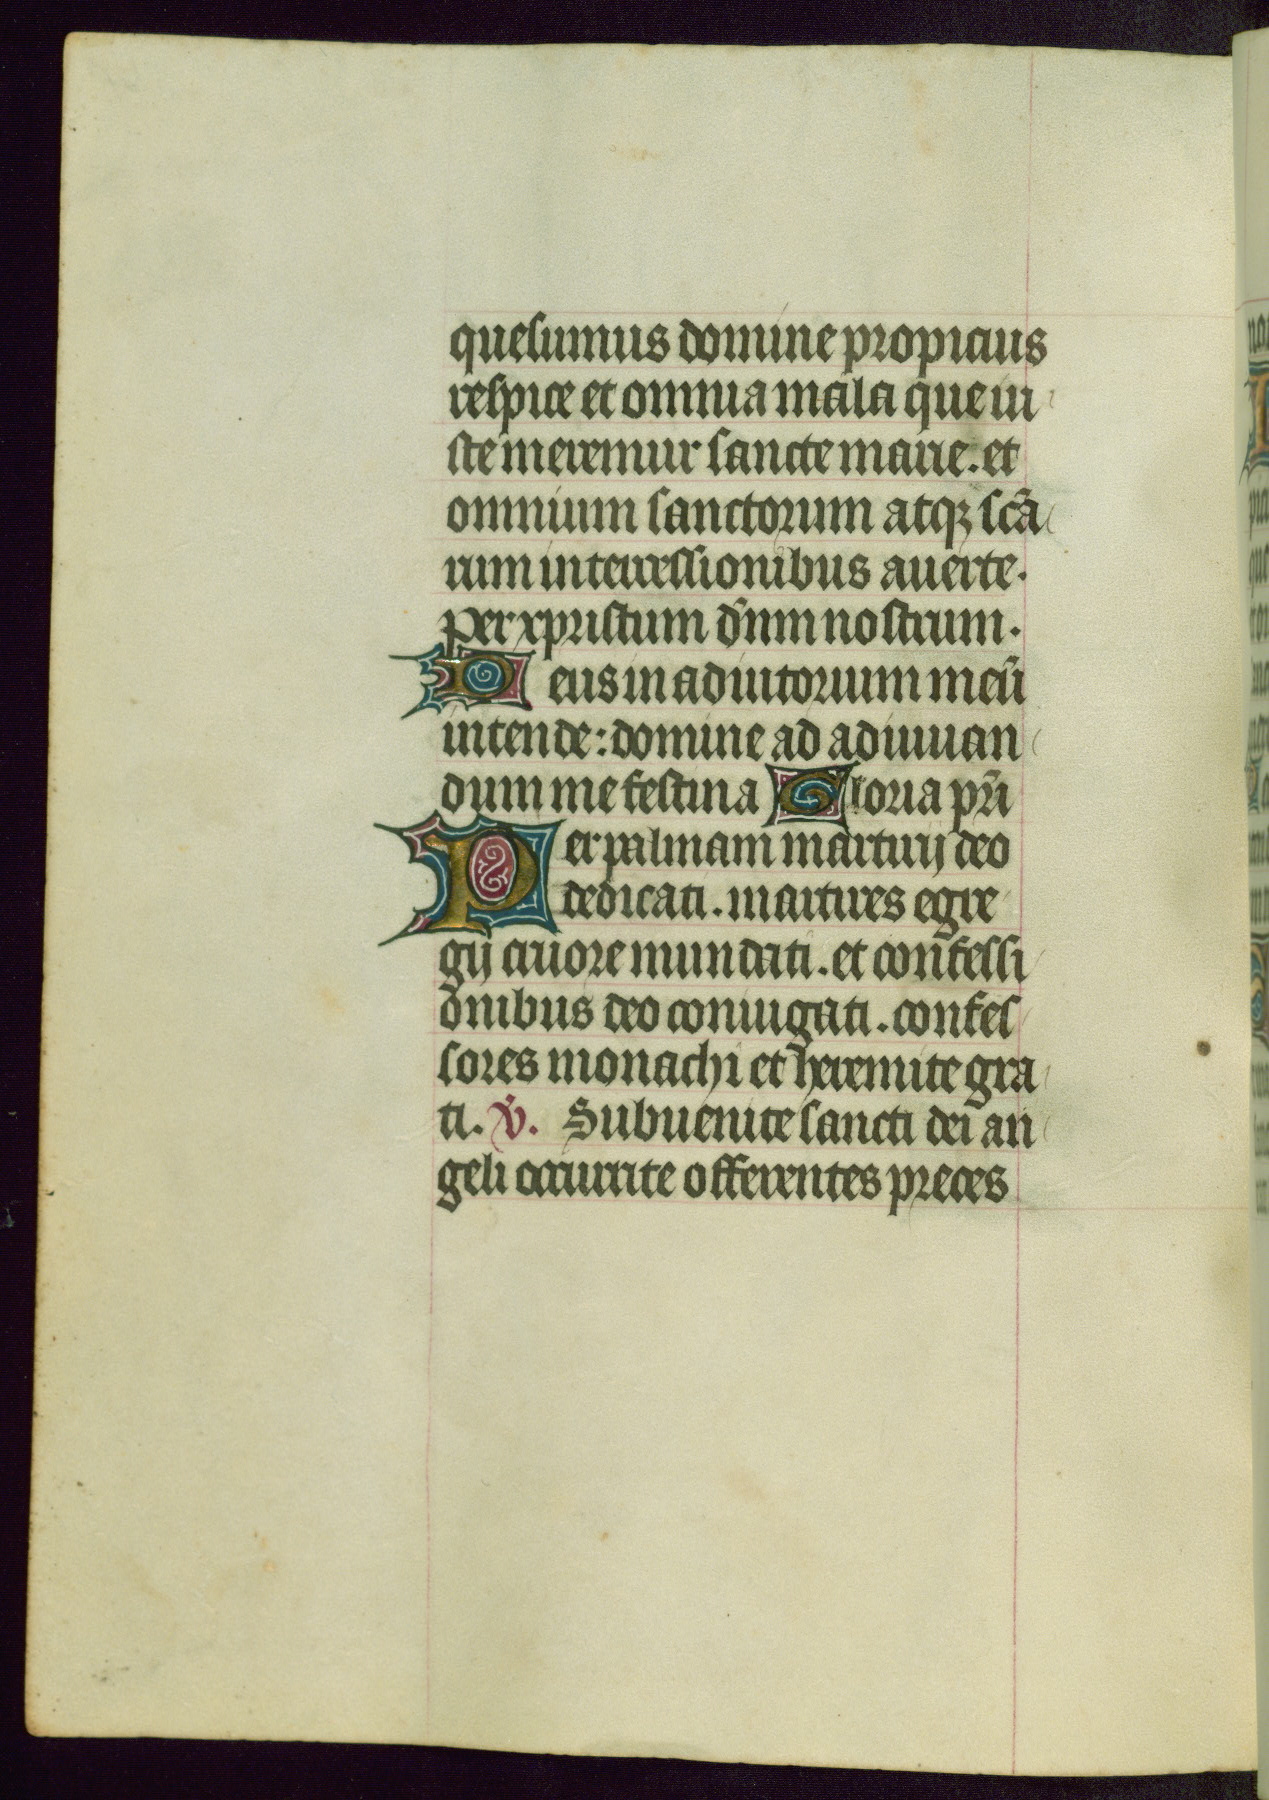 quesumus domine propicius
respice et omnia mala que iu
ste meremur sancte marie. et
omnium sanctorum atqꝫ scā
rum intercessionibus auerte.
per xpristum dñm nostrum.
Deus in adiutorium meū
intende: domine ad adiuuan
dum me festina Gloria pri̅
Per palmam martirij deo
dedicati. martires egre
gij cruore mundati. et confessi
onibus deo coniugati. confes
sores monachi et heremite gra
ti. v̇. Subuenite sancti dei an
geli occurrite offerentes preces